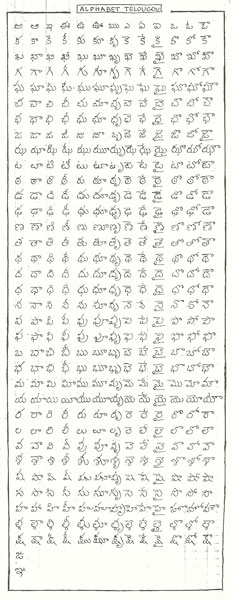 ALPHABET TELOUGOU
అ ఆ ఇ ఈ ఉ ఊ ఋ ఎ ఏ ఐ ఒ ఓ ఔ
క కా కి కీ కు కూ కృ కె కే కై కొ కో కౌ
ఖ ఖా ఖి ఖీ ఖు ఖూ ఖృ ఖె ఖే ఖై ఖొ ఖో ఖౌ
గ గా గి గీ గు గూ గృ గె గే గై గొ గో గౌ
ఘ ఘా ఘి ఘీ ఘు ఘూ ఘృ ఘె ఘే ఘై ఘొ ఘో ఘౌ
చ చా చి చీ చు చూ చృ చె చే చై చొ చో చౌ
ఛ ఛా ఛి ఛీ ఛు ఛూ ఛృ ఛె ఛే ఛై ఛొ ఛో ఛౌ
జ జా జి జీ జు జూ జృ జె జే జై జొ జో జౌ
ఝ ఝా ఝి ఝీ ఝు ఝూ ఝృ ఝె ఝే ఝై ఝొ ఝో ఝౌ
ట టా టి టీ టు టూ టృ టె టే టై టొ టో టౌ
ఠ ఠా ఠి ఠీ ఠు ఠూ ఠృ ఠె ఠే ఠై ఠొ ఠో ఠౌ
డ డా డి డీ డు డూ డృ డె డే డై డొ డో డౌ
ఢ ఢా ఢి ఢీ ఢు ఢూ ఢృ ఢె ఢే ఢై ఢొ ఢో ఢౌ
ణ ణా ణి ణీ ణు ణూ ణృ ణె ణే ణై ణొ ణో ణౌ
త తా తి తీ తు తూ తృ తె తే తై తొ తో తౌ
థ థా థి థీ థు థూ థృ థె థే థై థొ థో థౌ
ద దా ది దీ దు దూ దృ దె దే దై దొ దో దౌ
ధ ధా ధి ధీ ధు ధూ ధృ ధె ధే ధై ధొ ధో ధౌ
న నా ని నీ ను నూ నృ నె నే నై నొ నో నౌ
ప పా పి పీ పు పూ పృ పె పే పై పొ పో పౌ
ఫ ఫా ఫి ఫీ ఫు ఫూ ఫృ ఫె ఫే ఫై ఫొ ఫో ఫౌ
బ బా బి బీ బు బూ బృ బె బే బై బొ బో బౌ
భ భా భి భీ భు భూ భృ భె భే భై భొ భో భౌ
మ మా మి మీ ము మూ మృ మె మే మై మొ మో మౌ
య యా యి యీ యు యూ యృ యె యే యై యొ యో యౌ
ర రా రి రీ రు రూ రృ రె రే రై రొ రో రౌ
ల లా లి లీ లు లూ లృ లె లే లై లొ లో లౌ
వ వా వి వీ వు వూ వృ వె వే వై వొ వో వౌ
శ శా శి శీ శు శూ శృ శె శే శై శొ శో శౌ
ష షా షి షీ షు షూ షృ షె షే షై షొ షో షౌ
స సా సి సీ సు సూ సృ సె సే సై సొ సో సౌ
హ హా హి హీ హు హూ హృ హె హే హై హొ హో హౌ
ళ ళా ళి ళీ ళు ళూ ళృ ళె ళే ళై ళొ ళో ళౌ
క్ష క్షా క్షి క్షీ క్షు క్షూ క్షృ క్షె క్షే క్షై క్షొ క్షో క్షౌ
ఙ
ఞ